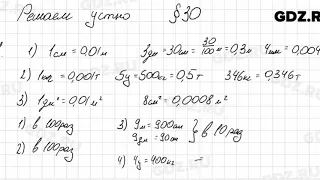 Решаем устно § 30 GDZ.RU
1) 1см = 0,01м 3дм = 30см = 30/100м = 0,3м 4мм = 0,004
2) 1кг = 0,001т 5ц = 500кг = 0,5т 346кг = 0,346т
3) 1дм² = 0,01м² 8см² = 0,0008м²
1) в 100раз 3) 9м = 900см } в 10раз
2) 100раз 9дм = 90см
4) 4ц = 400кг
GDZ.RU